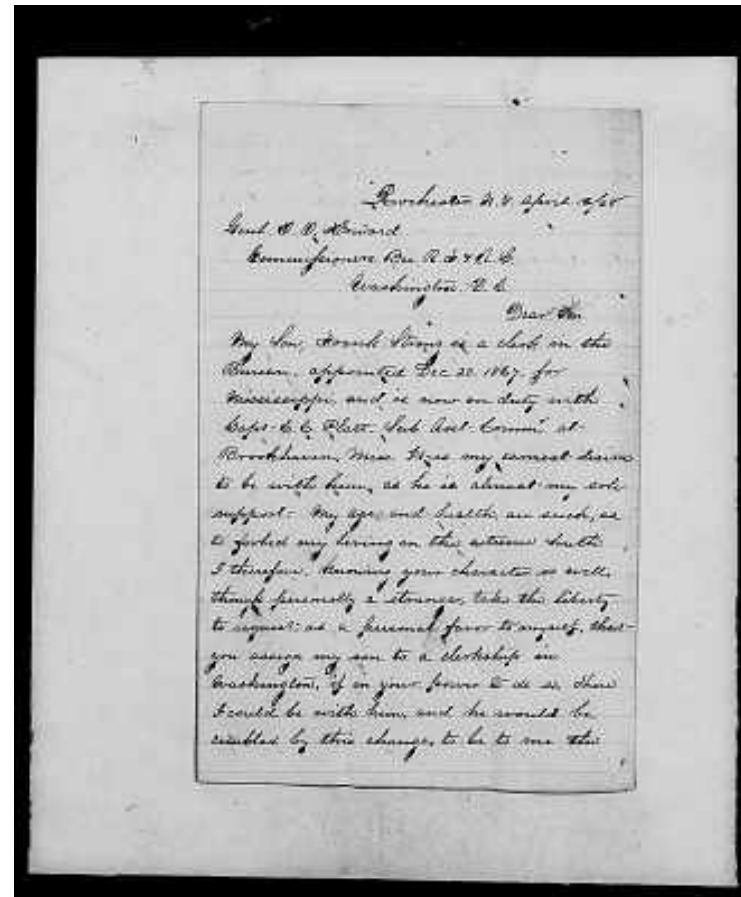 Rochester N.Y. April
Genl O. O. Howard
Commissioner Bu R. F. & A. L.
Washington D.C.
Dear Sir
My Son, Strong is a clerk in the
Bureau, appointed Dec 20 1867, for
Mississippi, and is now on duty with
Capt. E. E. Platt Sub Asst Commr at
Brookhaven, Miss. It is my earnest desire
to be with him, as he is almost my sole
support - My age and health are such, as
to forbid my living in the extreme South
I therefore, knowing your character so well,
though personally a stranger, take the liberty
to request: as a personal favor to myself, that
you assign my son to a clerkship in
Washington, if in your power to do so. There
I could be with him, and he would be
enabled by this change, to be to me the